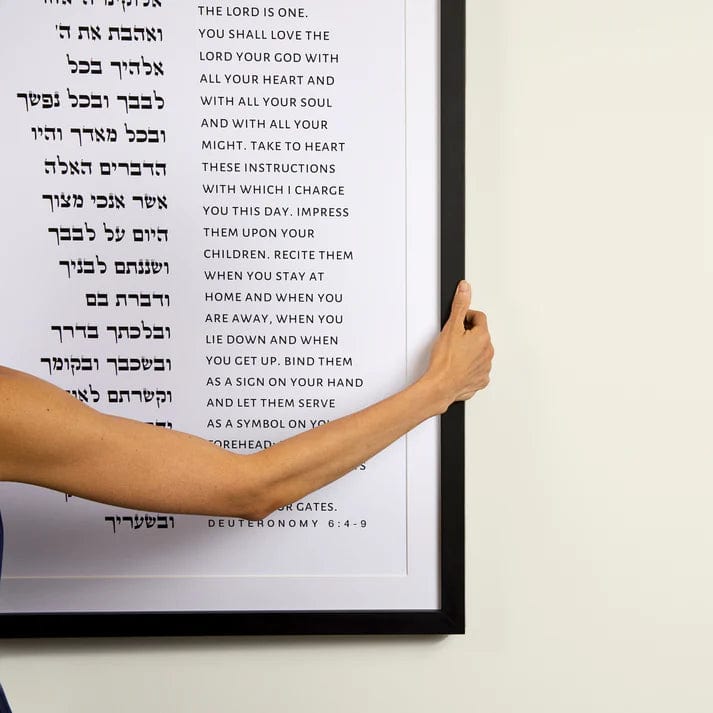 אלוקינו ה' אחד
ואהבת את ה'
אלהיך בכל
לבבך ובכל נפשך
ובכל מאדך והיו
הדברים האלה
אשר אנכי מצוך
היום על לבבך
ושננתם לבניך
ודברת בם
ובלכתך בדרך
ובשכבך ובקומך
וקשרתם
ובשעריך
THE LORD IS ONE.
YOU SHALL LOVE THE
LORD YOUR GOD WITH
ALL YOUR HEART AND
WITH ALL YOUR SOUL
AND WITH ALL YOUR
MIGHT. TAKE TO HEART
THESE INSTRUCTIONS
WITH WHICH I CHARGE
YOU THIS DAY. IMPRESS
THEM UPON YOUR
CHILDREN. RECITE THEM
WHEN YOU STAY AT
HOME AND WHEN YOU
ARE AWAY, WHEN YOU
LIE DOWN AND WHEN
YOU GET UP. BIND THEM
AS A SIGN ON YOUR HAND
AND LET THEM SERVE
AS A SYMBOL ON
FOREHEAD
GATES.
DEUTERONOMY 6:4-9